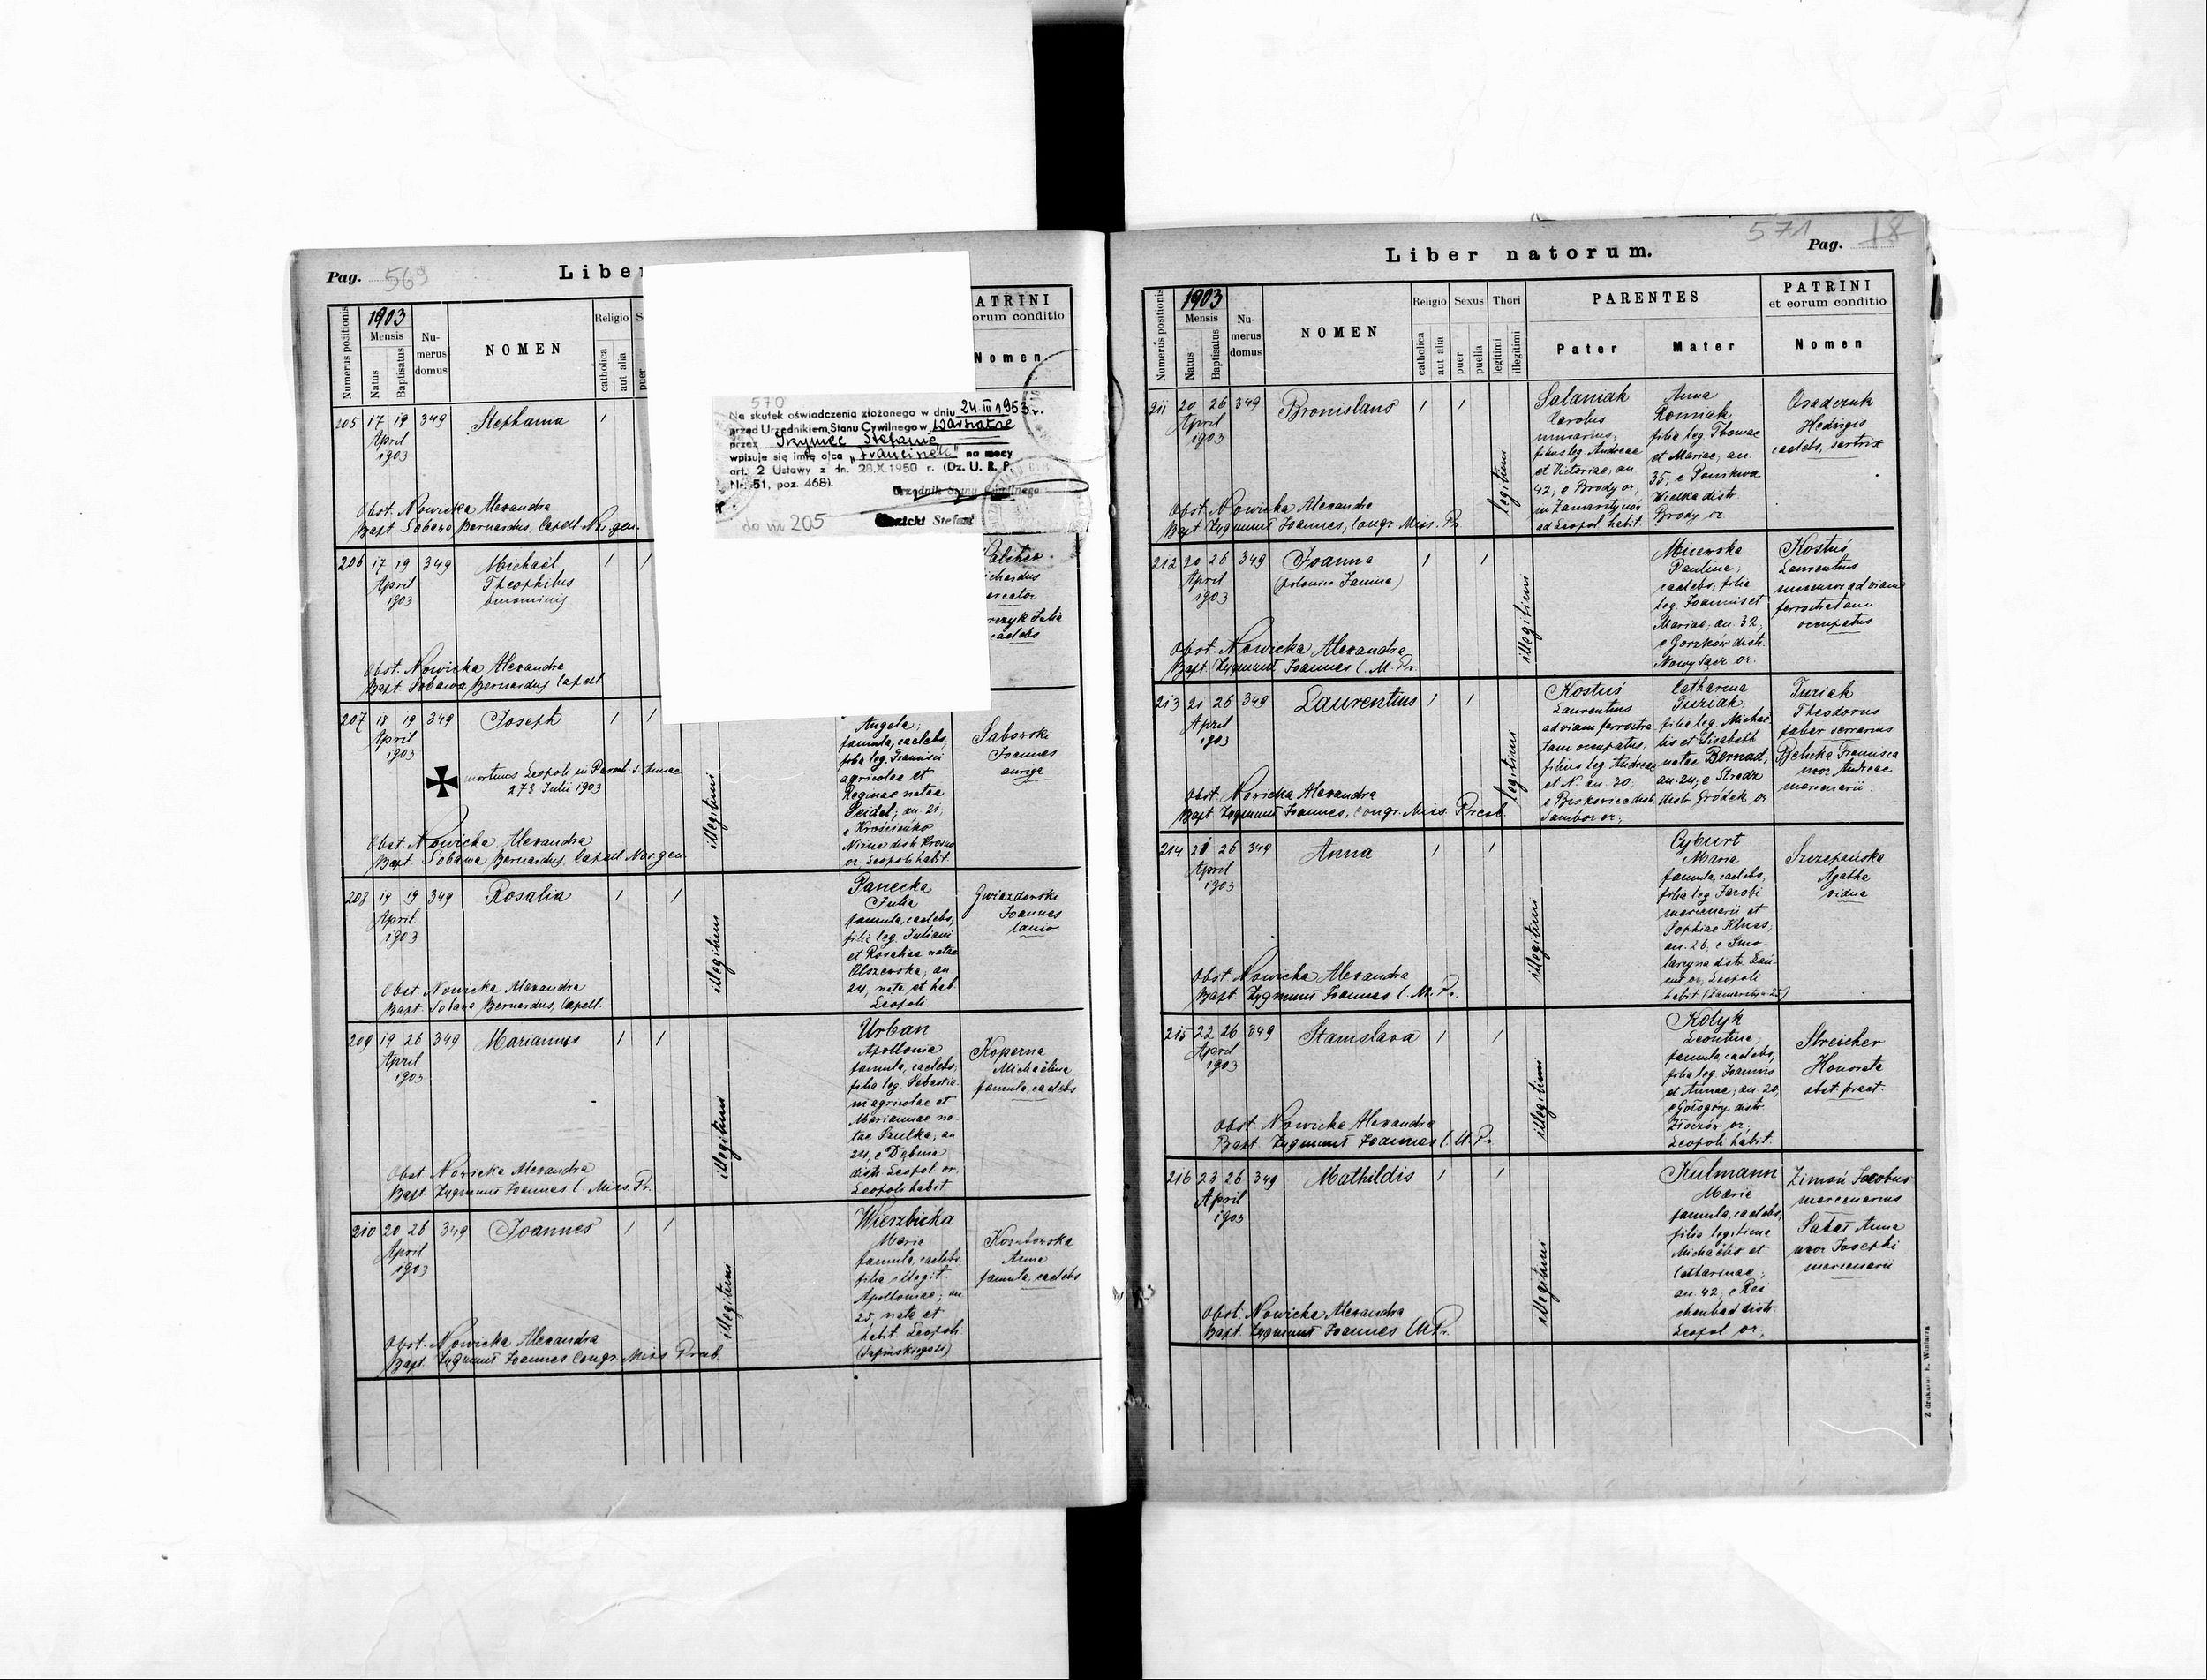 Pag. 569
Liber
1903
Numerus positionis
Mensis
Natus
Baptisatus
Nu-
merus
domus
NOMEN
Religio
catholica
aut alia
puer
ATRINI
orum conditio
Nomen
570
Na skutek oświadczenia złożonego w dniu 24 III 1953 r.
przed Urzędnikiem Stanu Cywilnego w Warszawie
przez Stefanię
wpisuje się imię ojca „Franciszek" na mocy
art. 2 Ustawy z dn. 28.X.1950 r. (Dz. U. R. P.
Nr. 51, poz. 468).
Urzędnik Stanu Cywilnego
do nr 205
Stefan
205 17 19 349 Stephania 1
April
1903
Obst. Nowicka Alexandra
Bapt. Sobawa Bernardus, Capell. Nos. gen.
206 17 19 349 Michaël 1 1
April Theophilus
1903 binominis
rczyk Julia
caelebs
Obst. Nowicka Alexandra
Bapt. Sobawa Bernardus Capell
207 18 19 349 Joseph 1 1
April
1903
mortuus Leopoli in Paroch S. Annae
27 Julii 1903
illegitimi
Angela,
famula, caelebs,
filia leg. Francisci
agricolae et
Reginae natae
Seidel, an. 21,
e Krościenko
Niżne distr. Krosno
or. Leopoli habit.
Saborski
Joannes
auriga
Obst. Nowicka Alexandra
Bapt. Sobawa Bernardus, Capell. Nos. gen.
208 19 19 349 Rosalia 1 1
April
1903
illegitimi
Panecka
Julia
famula, caelebs,
filia leg. Juliani
et Rosaliae natae
Olszewska, an
24, nata et hab.
Leopoli.
Gwiazdowski
Joannes
lanio
Obst. Nowicka Alexandra
Bapt. Sobawa Bernardus, Capell.
209 19 26 349 Mariannus 1 1
April
1903
illegitimi
Urban
Apollonia
famula, caelebs,
filia leg. Sebastia-
ni agricolae et
Mariannae na-
tae Szulka, an
24, e Dąbnia
distr. Leopol or.
Leopoli habit.
Koperna
Michaëlina
famula, caelebs
Obst. Nowicka Alexandra
Bapt. Zygmunt Joannes C. Miss. Pr.
210 20 26 349 Joannes 1 1
April
1903
illegitimi
Wierzbicka
Maria
famula, caelebs,
filia illegit.
Apolloniae, an
25, nata et
habit. Leopoli
Anna
famula, caelebs
Obst. Nowicka Alexandra
Bapt. Zygmunt Joannes Congr. Miss. Presb.
571
Pag. 18
Liber natorum.
1903
Numerus positionis
Mensis
Natus
Baptisatus
Nu-
merus
domus
NOMEN
Religio
catholica
aut alia
Sexus
puer
puella
Thori
legitimi
illegitimi
PARENTES
Pater
Mater
PATRINI
et eorum conditio
Nomen
211 20 26 349 Bronislaus 1 1
April
1903
legitimi
Salaniak
Carolus
murarius,
filius leg. Andreae
et Victoriae, an
42, e Brody or,
in Zamarstynów
ad Leopol habit
Anna
Ronnak
filia leg. Thomae
et Mariae, an.
35, e Ponikwa
Wielka distr.
Brody or
Osadczuk
Hedvigis
caelebs, sartrix
Obst. Nowicka Alexandra
Bapt. Zygmunt Joannes, Congr. Miss. Pr.
212 20 26 349 Joanna 1 1
April (polonice Janina)
1903
illegitimi
Paulina,
caelebs, filia
leg. Joannis et
Mariae, an. 32,
e Gorzków distr.
Nowy Sącz or.
Kostuś
Laurentius
ad viam
ferrostratam
occupatus
Obst. Nowicka Alexandra
Bapt. Zygmunt Joannes C. M. Pr.
213 21 26 349 Laurentius 1 1
April
1903
legitimi
Kostuś
Laurentius
ad viam ferrostra-
tam occupatus,
filius leg. Andreae
et N. an. 30,
e Biskowice distr.
Sambor or,
Catharina
Turiak,
filia leg. Michaë-
lis et Elisabeth
natae Bernad,
an. 24, e Stradz
distr. Gródek or
Turiak
Theodorus
faber serrarius
Bielicka Francisca
uxor Andreae
mercenarii
Obst. Nowicka Alexandra
Bapt. Zygmunt Joannes, Congr. Miss. Presb.
214 21 26 349 Anna 1 1
April
1903
illegitimi
Cyburt
Maria
famula, caelebs,
filia leg. Jacobi
mercenarii et
Sophiae Kluss,
an. 26, e Smo-
larzyna distr. Łań-
cut or, Leopoli
habit.
Szczepańska
Agatha
vidua
Obst. Nowicka Alexandra
Bapt. Zygmunt Joannes C. M. Pr.
215 22 26 349 Stanislava 1 1
April
1903
illegitimi
Kotyk
Leontina,
famula, caelebs,
filia leg. Joannis
et Annae, an. 20,
e Gołogóry distr.
Złoczów or,
Leopoli habit.
Streicher
Honorata
obst. pract.
Obst. Nowicka Alexandra
Bapt. Zygmunt Joannes C. M. Pr.
216 23 26 349 Mathildis 1 1
April
1903
illegitimi
Kulmann
Maria
famula, caelebs,
filia legitima
Michaëlis et
Catharinae,
an. 42, e Rei-
chenbad distr.
Leopol or,
Zimoń Jacobus
mercenarius
Sabat Anna
uxor Josephi
mercenarii
Obst. Nowicka Alexandra
Bapt. Zygmunt Joannes C. M. Pr.
Z drukarni E. Winiarza